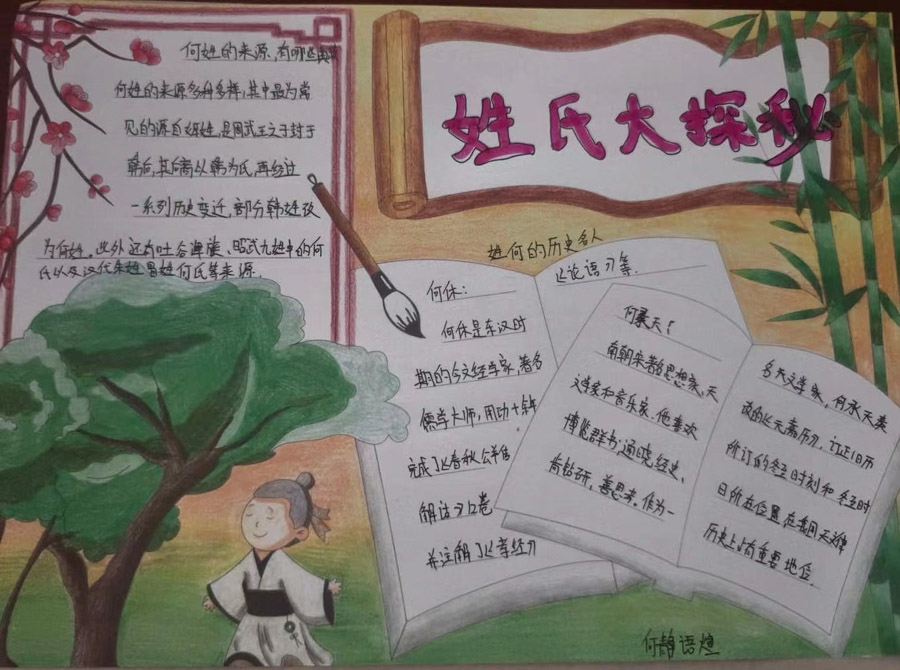 姓氏大探秘
何姓的来源,有哪些
何姓的来源多种多样,其中最为常
见的源自姬姓,是周武王之子封于
韩后,其后裔以韩为氏,再经过
一系列历史变迁,部分韩姓改
为何姓。此外还有吐谷浑族、昭武九姓中的何
氏以及汉代朱姓冒姓何氏等来源.
姓何的历史名人
何休:
何休是东汉时
期的今文经学家,著名
儒学大师,用功十年
完成了《春秋公羊
解诂》12卷
并注解了《孝经》
《论语》等.
何承天:
南朝宋著名思想家、天
文学家和音乐家.他喜欢
博览群书,通晓经史、
肯钻研、善思考.作为一
名天文学家,何承天美
改的《元嘉历》,订正旧历
所订的冬至时刻和冬至时
日所在位置,在我国天文律
历史上占有重要地位.
何静语煊